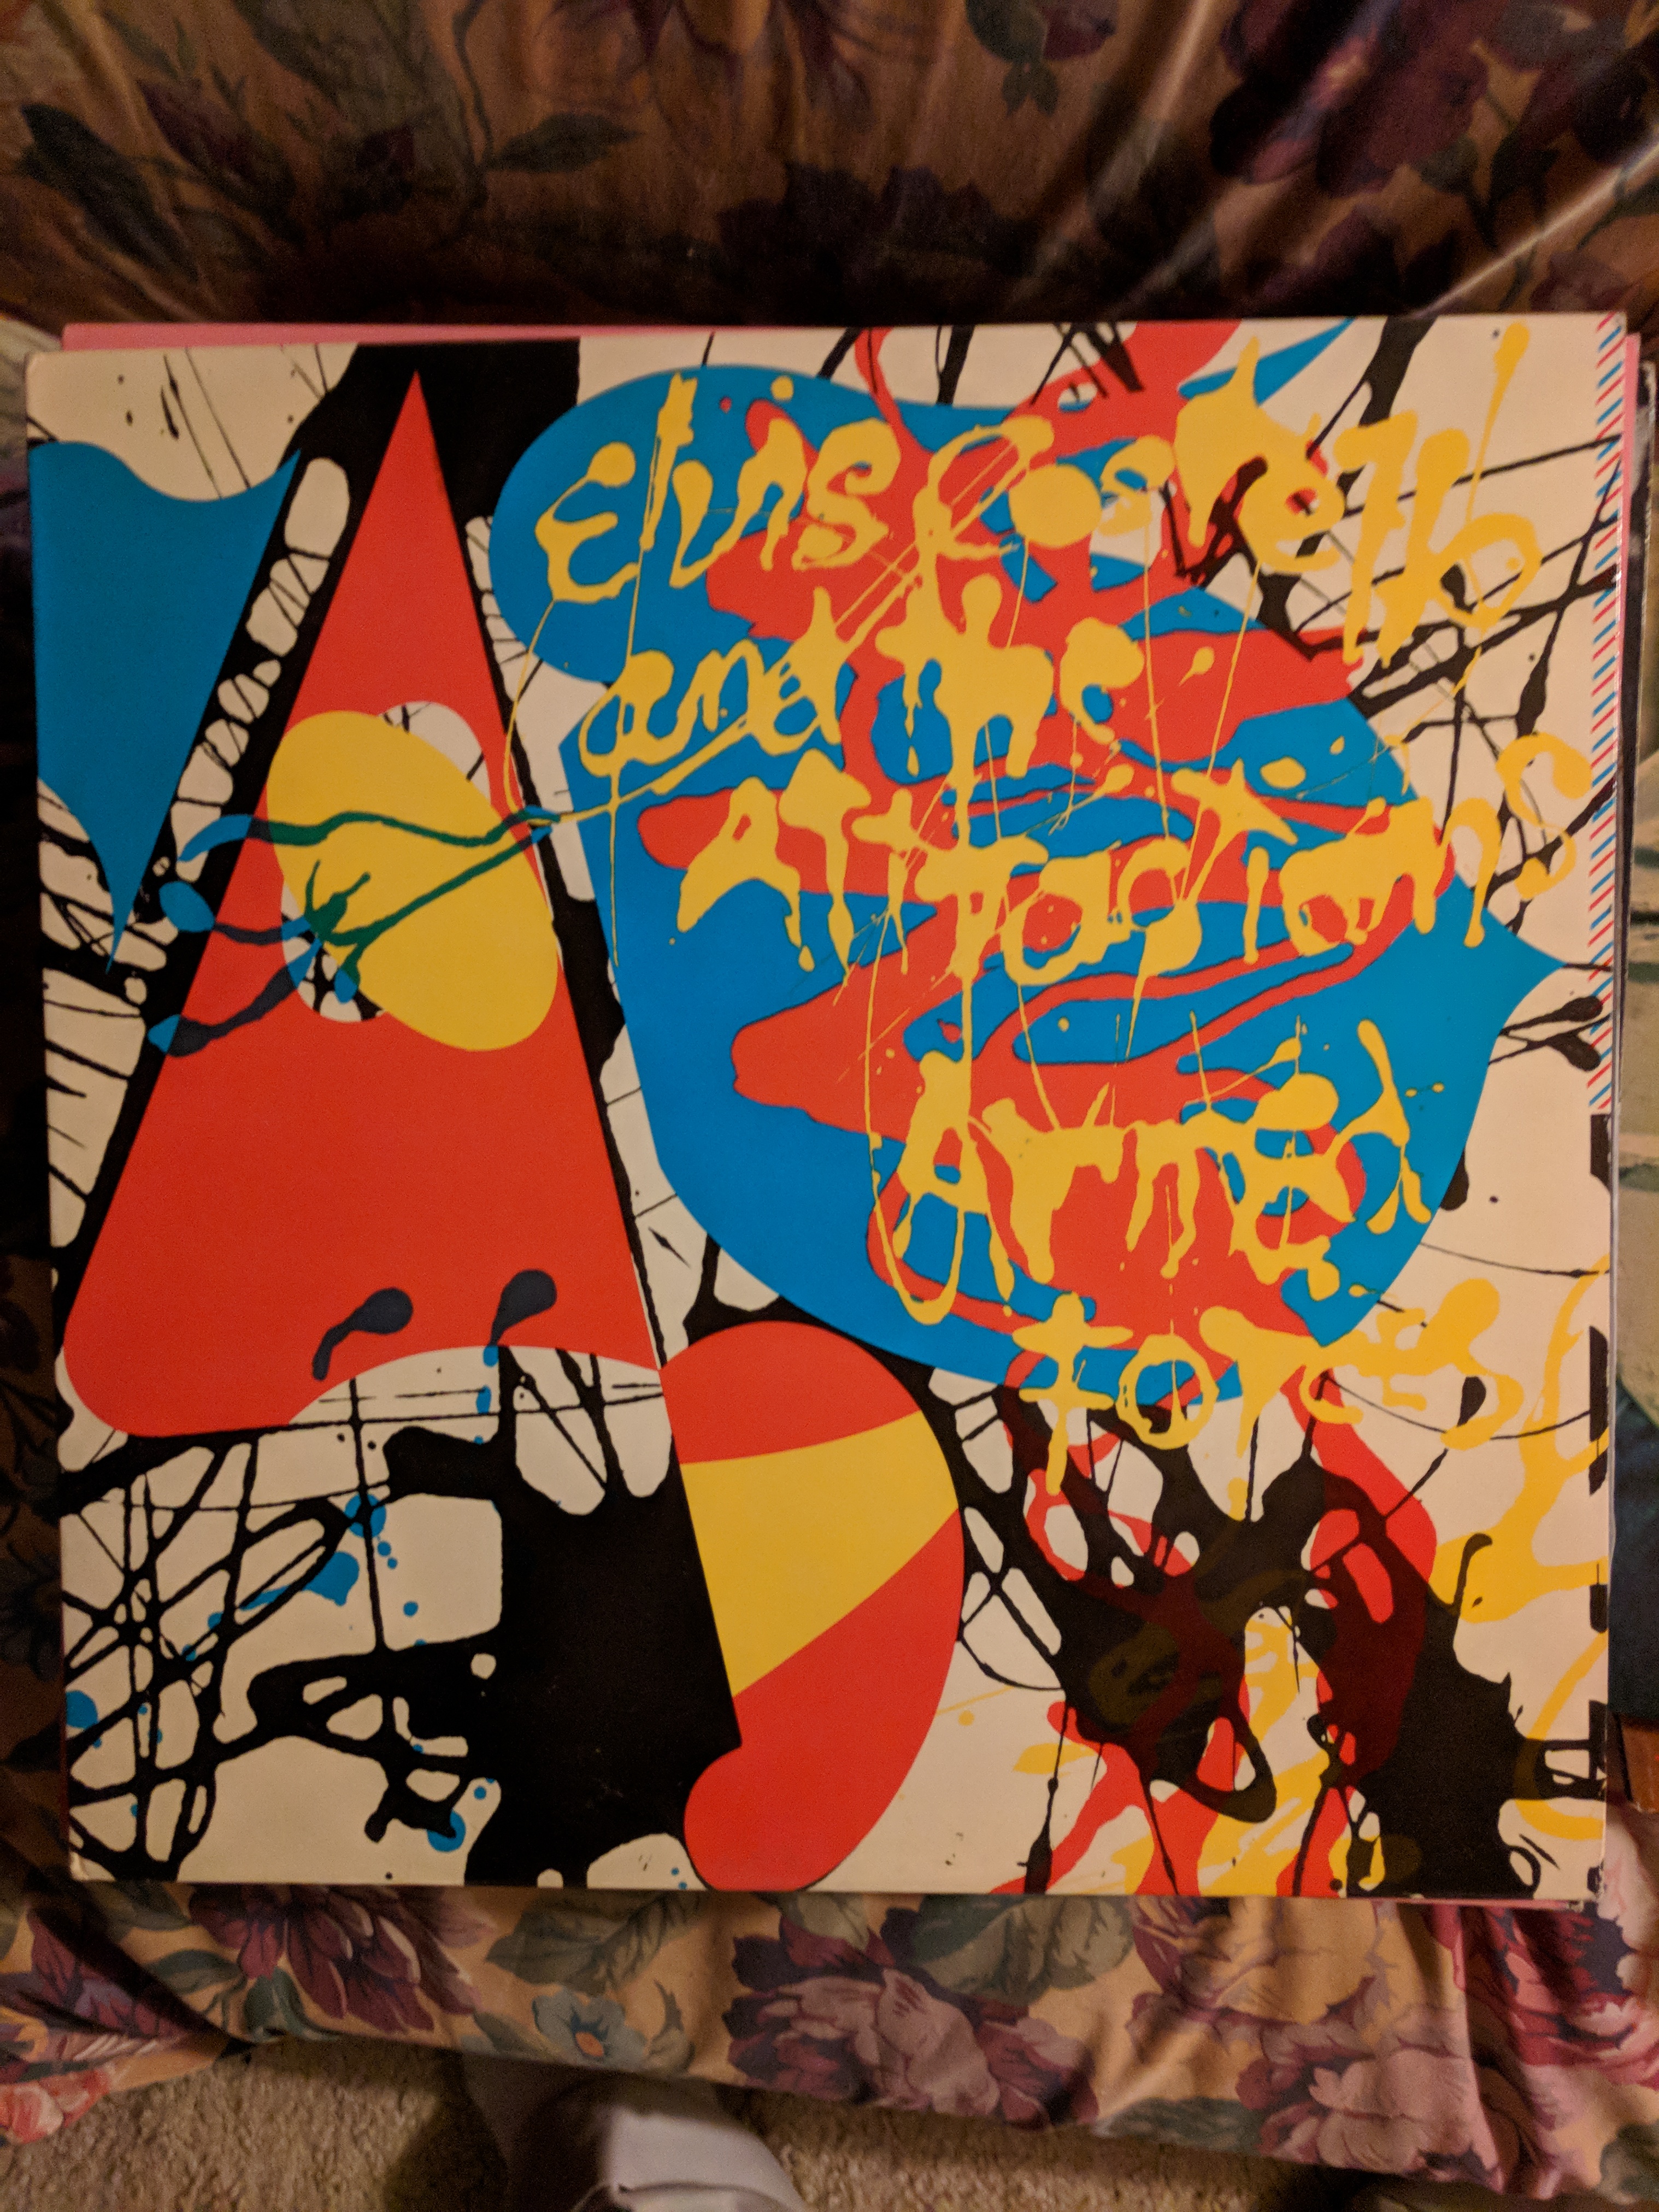 Elvis Costello
and the
Attractions
Armed
forces